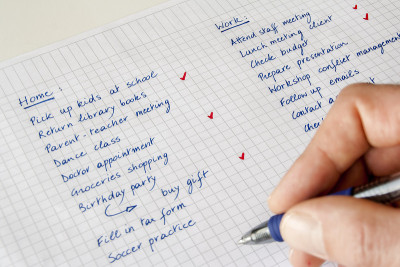 Home :
Pick up kids at school
Return library books
Parent-teacher meeting
Dance class
Doctor appointment
Groceries shopping
Birthday party
buy gift
Fill in tax form
Soccer practice
Work :
Attend staff meeting
Lunch meeting client
Check budget
Prepare presentation
Workshop conflict management
Follow up emails
Contact